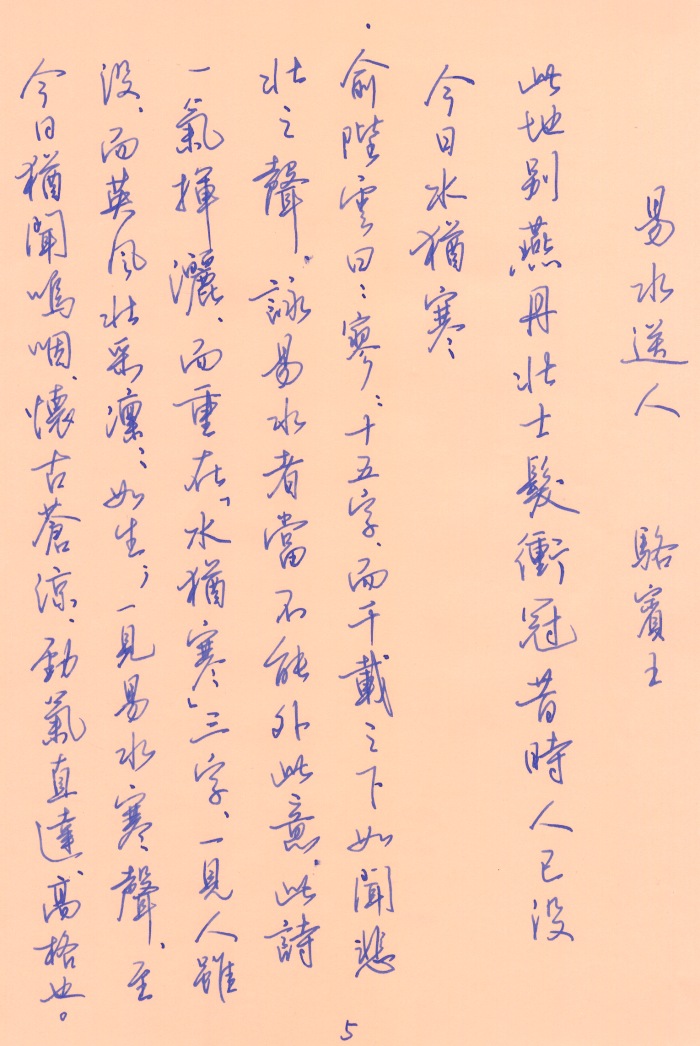 易水送人 駱賓王
此地別燕丹壯士髮衝冠昔時人已沒
今日水猶寒
俞陛雲曰:寥:十五字、而千載之下如聞悲
壯之聲。詠易水者當不能外此意、此詩
一氣揮灑、而重在「水猶寒」三字、一見人雖
沒、而英風壯采凜:如生,一見易水寒聲、至
今日猶聞嗚咽、懷古蒼涼、勁氣直達、高格也。
5